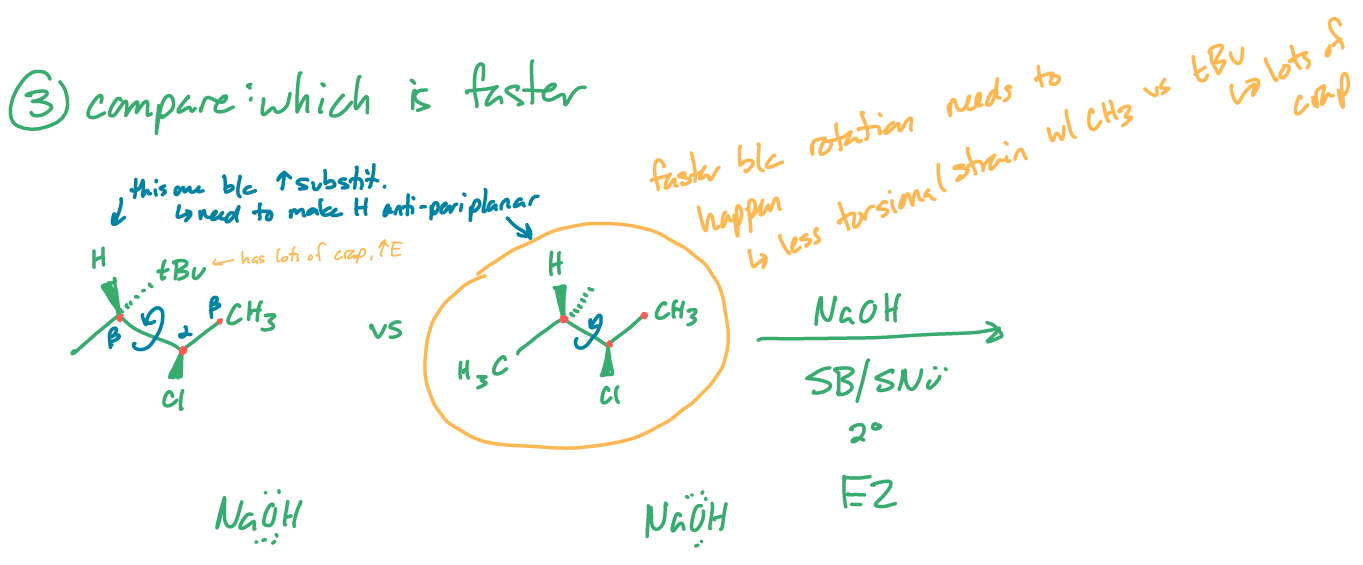 ③ compare: which is faster
this one b/c ↑ substit.
↳ need to make H anti-periplanar
faster b/c rotation needs to
happen
↳ less torsional strain w/ CH3 vs tBu
↳ lots of
crap
H
tBu ← has lots of crap, ↑E
β
CH3
β
α
Cl
vs
H
CH3
H3C
Cl
NaOH
SB/SNü
2°
E2
NaÖH
NaÖH